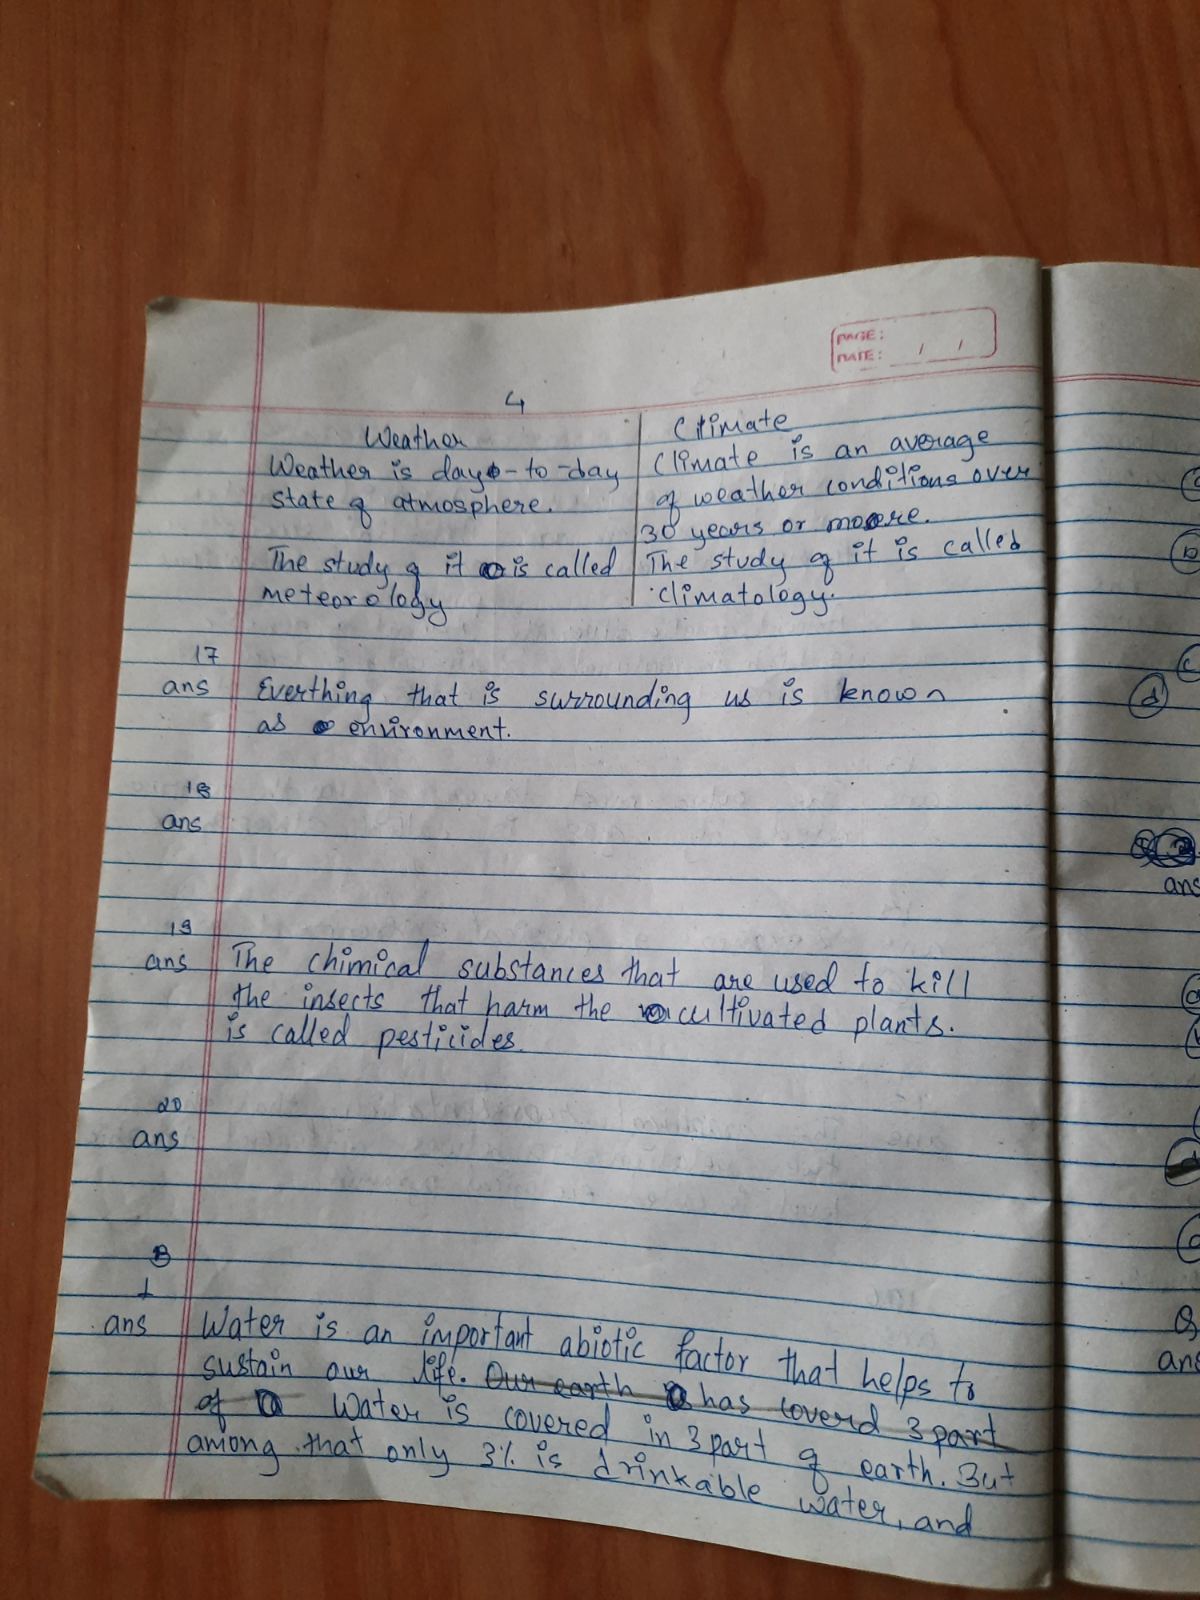 PAGE:
DATE: / /
4
Weather
Weather is day-to-day
state of atmosphere.
The study of it is called
meteorology
Climate
Climate is an average
of weather conditions over
30 years or more.
The study of it is called
climatology.
17
ans Everthing that is surrounding us is known
as environment.
18
ans
19
ans The chimical substances that are used to kill
the insects that harm the cultivated plants.
is called pesticides.
20
ans
B
1
ans Water is an important abiotic factor that helps to
sustain our life. Our earth has coverd 3 part
of Water is covered in 3 part of earth. But
among that only 3% is drinkable water, and
c
b
c
d
ans
a
ans